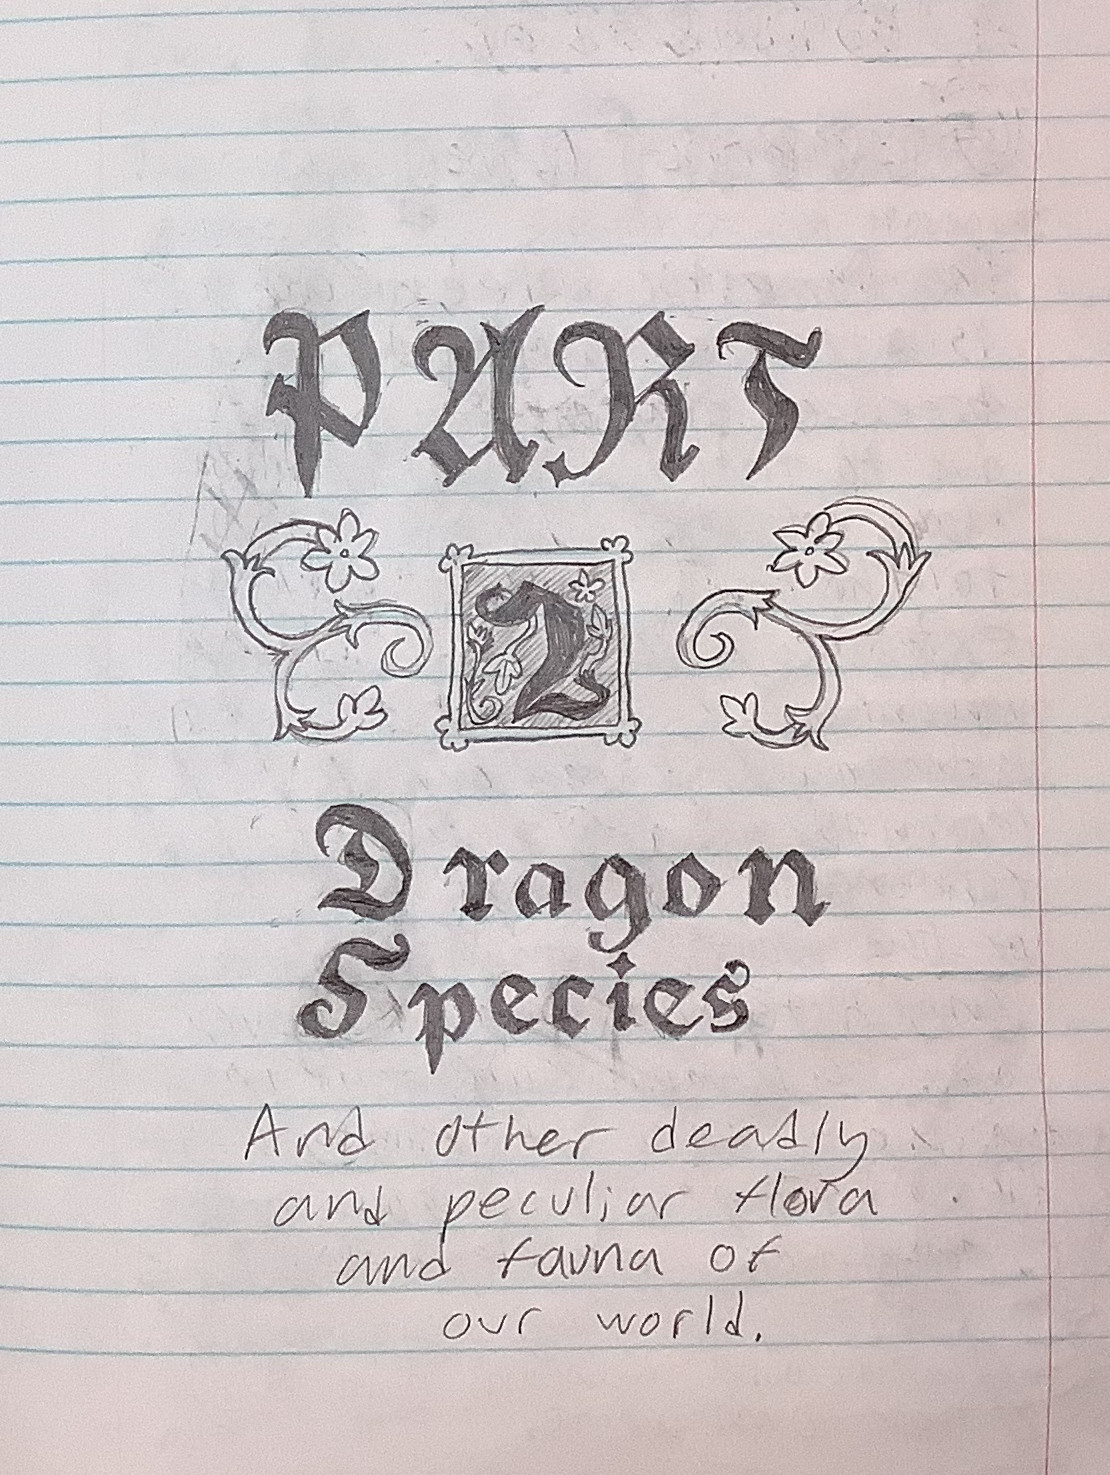 PART
2
Dragon
Species
And other deadly
and peculiar flora
and fauna of
our world.